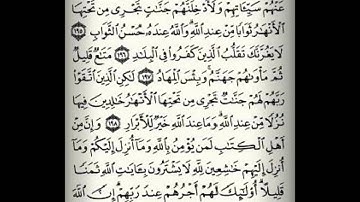 عَنْهُمْ سَيِّـَٔاتِهِمْ وَلَأُدْخِلَنَّهُمْ جَنَّٰتٍ تَجْرِى مِن تَحْتِهَا
ٱلْأَنْهَٰرُ ثَوَابًا مِّنْ عِندِ ٱللَّهِ وَٱللَّهُ عِندَهُۥ حُسْنُ ٱلثَّوَابِ ١٩٥
لَا يَغُرَّنَّكَ تَقَلُّبُ ٱلَّذِينَ كَفَرُوا۟ فِى ٱلْبِلَٰدِ ١٩٦ مَتَٰعٌ قَلِيلٌ
ثُمَّ مَأْوَىٰهُمْ جَهَنَّمُ وَبِئْسَ ٱلْمِهَادُ ١٩٧ لَٰكِنِ ٱلَّذِينَ ٱتَّقَوْا۟
رَبَّهُمْ لَهُمْ جَنَّٰتٌ تَجْرِى مِن تَحْتِهَا ٱلْأَنْهَٰرُ خَٰلِدِينَ فِيهَا
نُزُلًا مِّنْ عِندِ ٱللَّهِ وَمَا عِندَ ٱللَّهِ خَيْرٌ لِّلْأَبْرَارِ ١٩٨ وَإِنَّ مِنْ
أَهْلِ ٱلْكِتَٰبِ لَمَن يُؤْمِنُ بِٱللَّهِ وَمَآ أُنزِلَ إِلَيْكُمْ وَمَآ
أُنزِلَ إِلَيْهِمْ خَٰشِعِينَ لِلَّهِ لَا يَشْتَرُونَ بِـَٔايَٰتِ ٱللَّهِ ثَمَنًا
قَلِيلًا أُو۟لَٰٓئِكَ لَهُمْ أَجْرُهُمْ عِندَ رَبِّهِمْ إِنَّ ٱللَّهَ